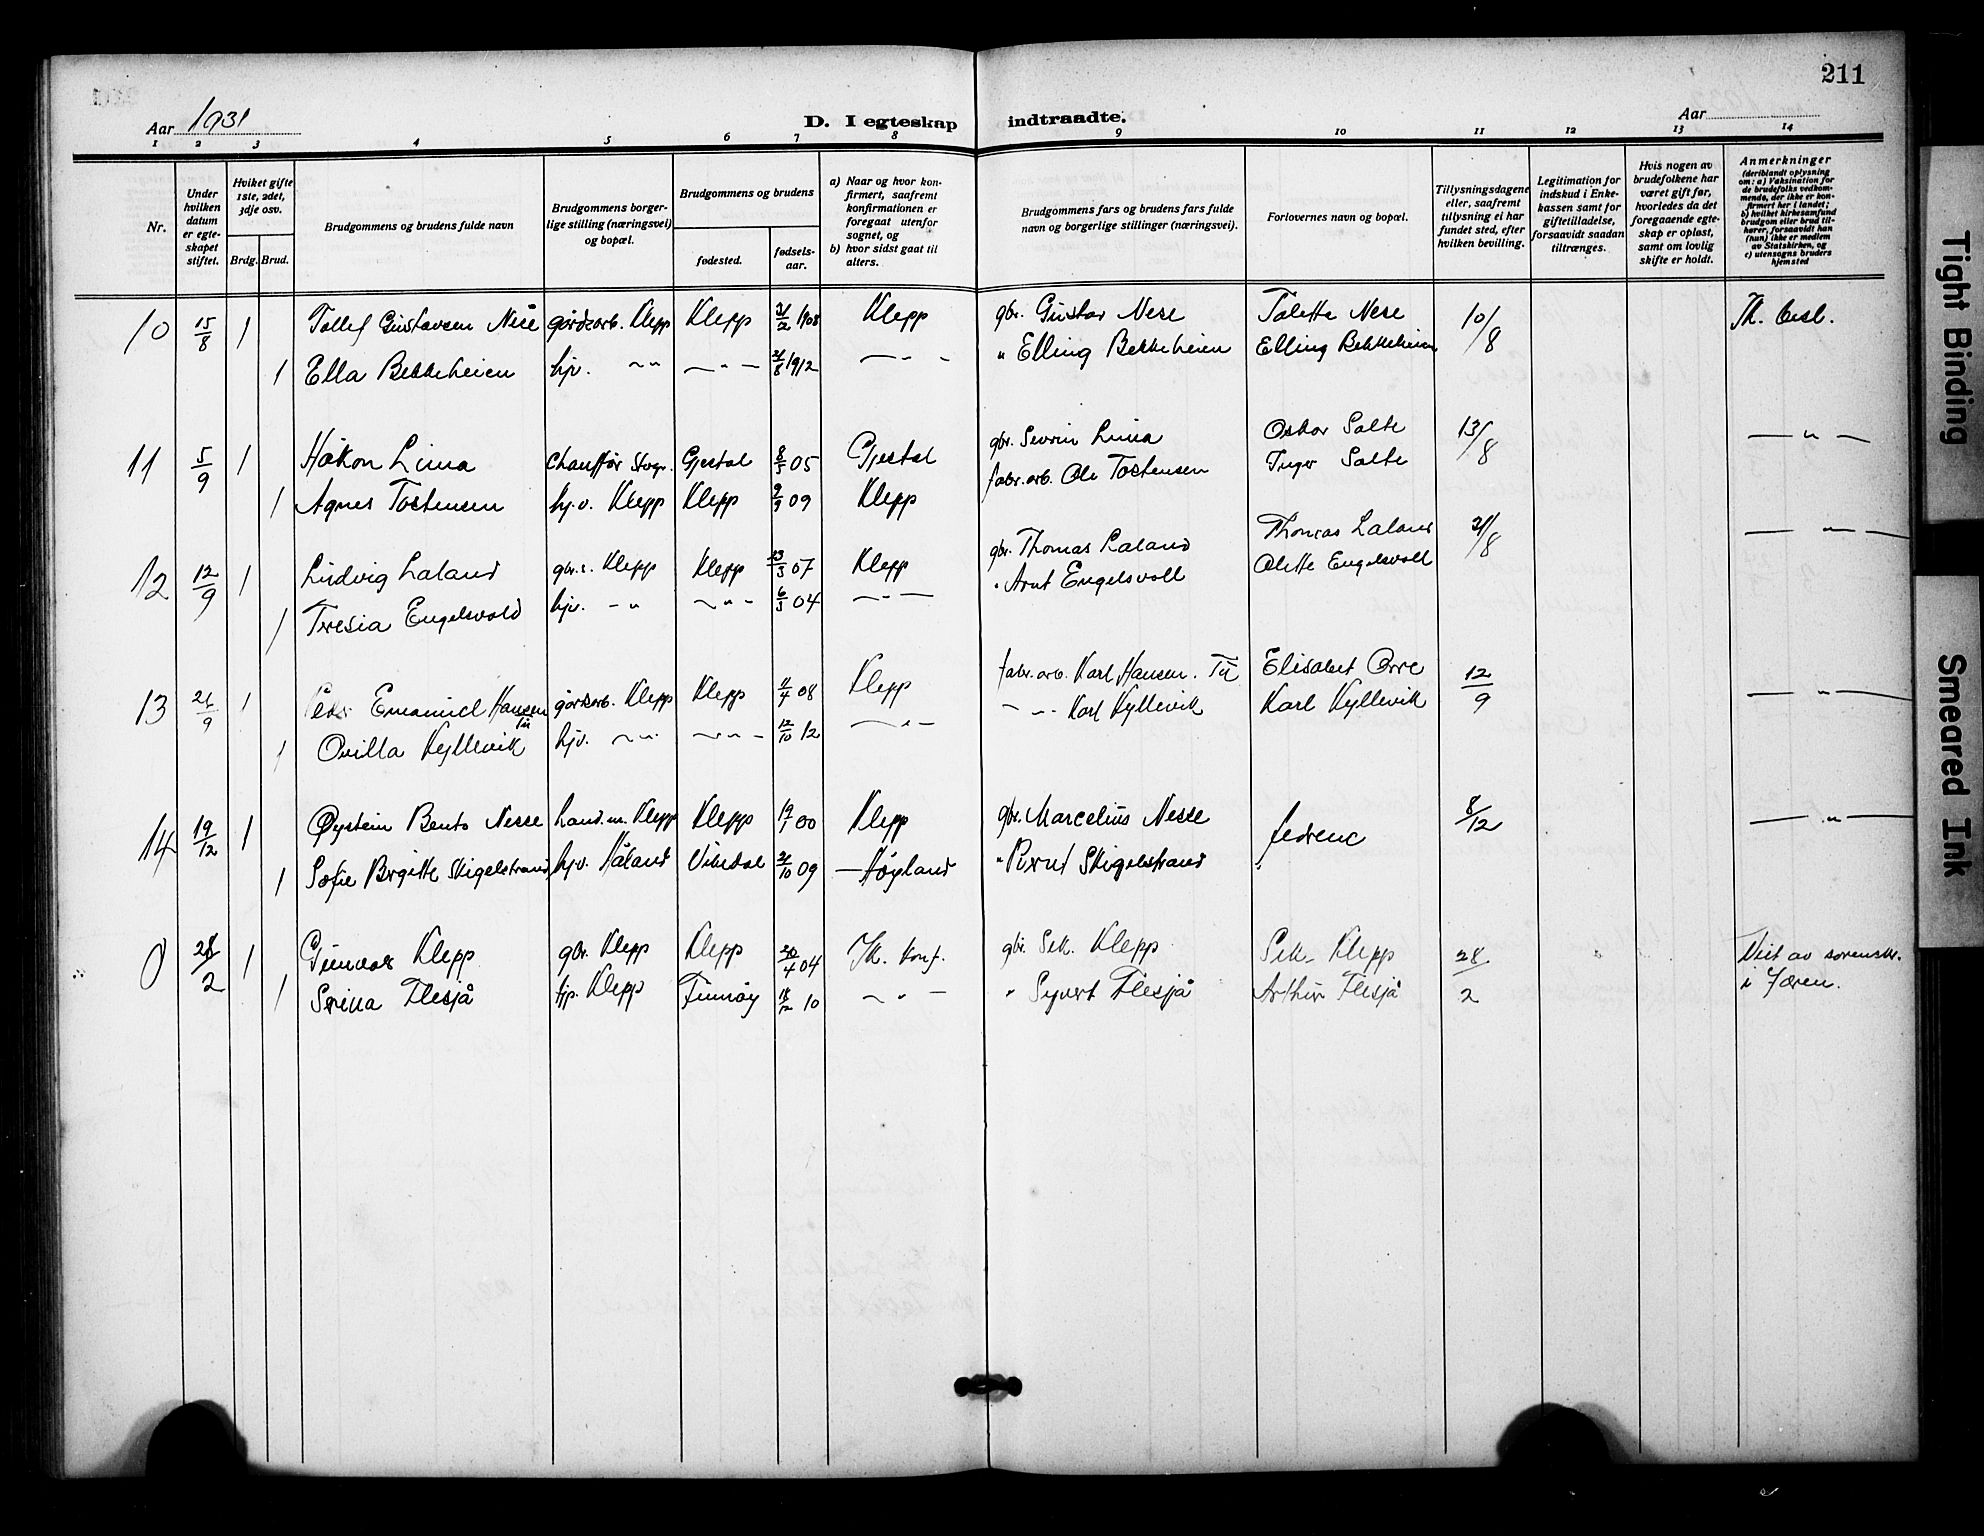 211
Aar 1931
D. I egteskap indtraadte.
Aar
1 2 3 4 5 6 7 8 9 10 11 12 13 14
Nr.
Under hvilken datum er egteskapet stiftet.
Hviket gifte 1ste, 2det, 3dje osv.
Brdg. Brud.
Brudgommens og brudens fulde navn
Brudgommens borgerlige stilling (næringsvei) og bopæl.
Brudgommens og brudens
fødested.
fødselsaar.
a) Naar og hvor konfirmert, saafremt konfirmationen er foregaat utenfor sognet, og
b) hvor sidst gaat til alters.
Brudgommens fars og brudens fars fulde navn og borgerlige stillinger (næringsvei).
Forlovernes navn og bopæl.
Tillysningsdagene eller, saafremt tillysning ei har fundet sted, efter hvilken bevilling.
Legitimation for indskud i Enkekassen samt for giftetilladelse, forsaavidt saadan tiltrænges.
Hvis nogen av brudefolkene har været gift før, hvorledes da det foregaaende egteskap er opløst, samt om lovlig skifte er holdt.
Anmerkninger (deriblandt oplysning om: a) Vaksination for de brudefolks vedkommende, der ikke er konfirmert her i landet; b) hvilket kirkesamfund brudgom eller brud tilhører, forsaavidt han (hun) ikke er medlem av Statskirken, og c) utensogns bruders hjemsted
10 15/8 1 Tollef Gustavsen Nese gårdsarb. Klepp Klepp 1908 Klepp gbr. Gustav Nese Tolette Nese 10/8
1 Ella Bekkeheien hjv. 〃 — 〃 — 1912 — 〃 — 〃 Elling Bekkeheien Elling Bekkeheien
11 5/9 1 Håkon Lima Chauffør Gjestal 8/5 05 Gjestal gbr. Sevrin Lima Oskar Salte 13/8 — 〃 —
1 Agnes Tostensen hj.v. Klepp Klepp 09 Klepp fabr.arb. Ole Tostensen Inger Salte
12 12/9 1 Ludvig Laland gbr.s. Klepp Klepp 07 Klepp gbr. Thomas Laland Thomas Laland 21/8 — 〃 —
1 Tresia Engelsvold hjv. — 〃 — 〃 — 04 — 〃 — 〃 Arnt Engelsvoll Olette Engelsvoll
13 26/9 1 Peder Emanuel Hansen Tu gårdsarb. Klepp Klepp 11/4 08 Klepp fabr.arb. Karl Hansen. Tu Elisabet Orre 12/9 — 〃 —
1 Ovilla Kyllevik hjv. 〃 — 〃 — 12/10 12 — 〃 — — 〃 — Karl Kyllevik Karl Kyllevik
14 19/12 1 Øystein Bento Nesse Klepp Klepp 19/1 00 Klepp gbr. Marcelius Nesse fedrene 8/12 — 〃 —
1 Sofie Birgitte Skigelstrand hjv. Håland Vikedal 21/10 09 — Høyland 〃 Skigelstrand
0 28/2 1 Gunvar Klepp gbr. Klepp Klepp 20/4 04 Ik. konf. gbr. Sek. Klepp Sek. Klepp 28/2 Viet av sorenskr.
1 Serina Flesjå tjp. Klepp Finnøy 18/12 10 — 〃 — 〃 Syvert Flesjå Arthur Flesjå i Jæren.
Tight Binding
Smeared Ink